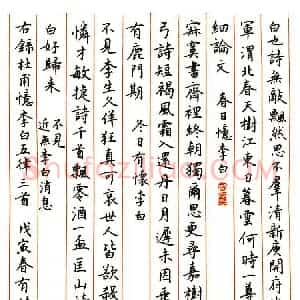 白也詩無敵飄然思不羣清新庾開府
軍渭北春天樹江東日暮雲何時一尊
細論文 春日憶李白
寂寞書齋裡終朝獨爾思更尋嘉樹
弓詩短褐風霜入還丹日月遲未因乘
有鹿門期 冬日有懷李白
不見李生久佯狂真可哀世人皆欲殺
憐才敏捷詩千首飄零酒一盃匡山
白好歸来 不見
近無李白消息
右錄杜甫憶李白五律三首 戊寅春有